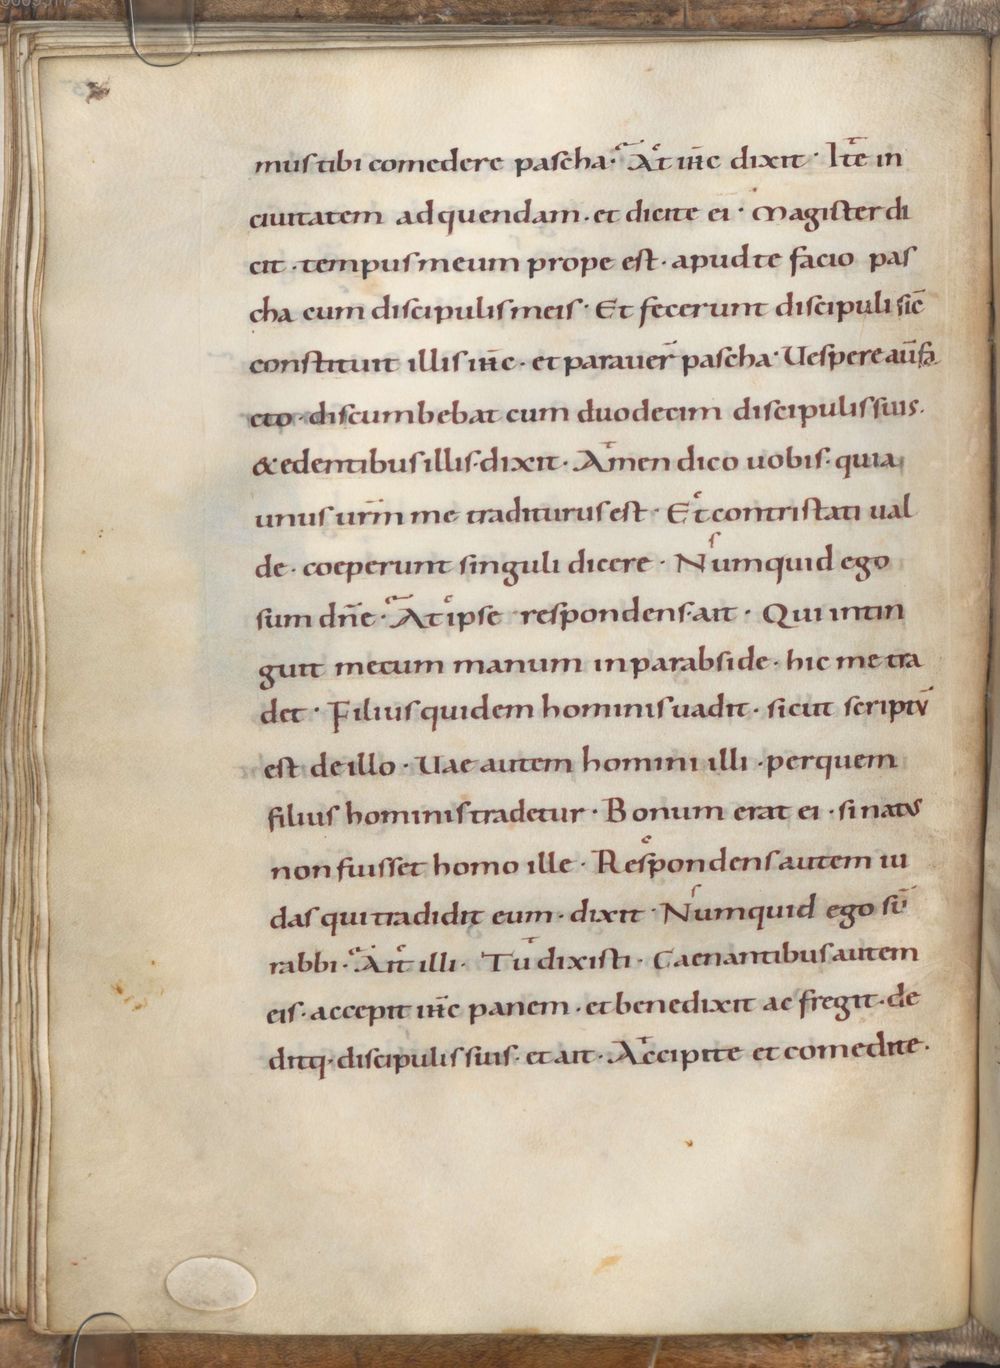 mus tibi comedere pascha · At ih̄c dixit · Ite in
ciuitatem ad quendam · et dicite ei · Magister di
cit · tempus meum prope est · apud te facio pas
cha cum discipulis meis · Et fecerunt discipuli sic̄
constituit illis ih̄c · et parauer̄ pascha · Uespere aūt fa
cto · discumbebat cum duodecim discipulis suis ·
& edentibus illis · dixit · Amen dico uobis · quia
unus ur̄m me traditurus est · Et contristati ual
de · coeperunt singuli dicere · Numquid ego
sum dn̄e · At ipse respondens · ait · Qui intin
guit mecum manum in parabside · hic me tra
det · Filius quidem hominis uadit · sicut scriptū
est de illo · Uae autem homini illi · per quem
filius hominis tradetur · Bonum erat ei · si natus
non fuisset homo ille · Respondens autem iu
das qui tradidit eum · dixit · Numquid ego sū
rabbi · Ait illi · Tu dixisti · Caenantibus autem
eis · accepit ih̄c panem · et benedixit ac fregit · de
ditq · discipulis suis · et ait · Accipite et comedite ·